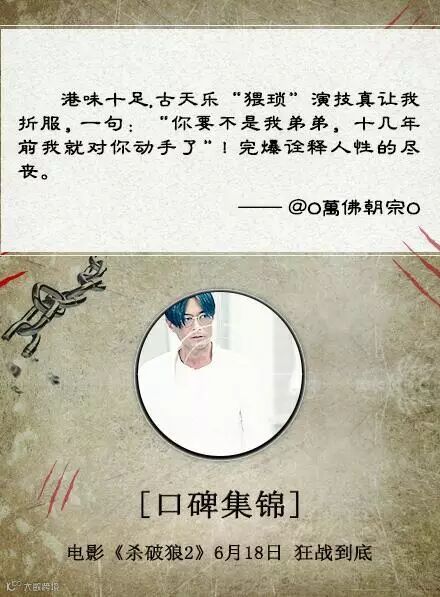 港味十足,古天乐“猥琐”演技真让我
折服。一句：“你要不是我弟弟，十几年
前我就对你动手了”！完爆诠释人性的尽
丧。
—— @o萬佛朝宗o
[口碑集锦]
电影《杀破狼2》6月18日 狂战到底
大数跨境